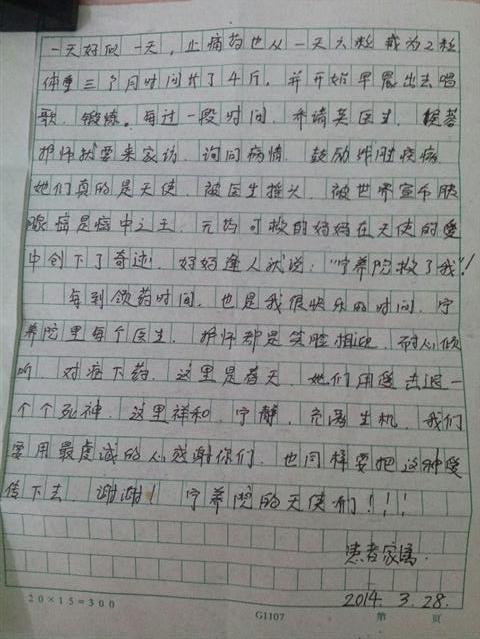 一天好似一天，止痛药也从一天六粒减为2粒
体重三个月时间长了4斤，并开始早晨出去唱
歌、锻炼。每过一段时间，乔靖英医生、程蓉
护师就要来家访，询问病情，鼓励战胜疾病，
她们真的是天使，被医生摇头，被世界宣布胰
腺癌是癌中之王，无药可救的妈妈在天使的爱
中创下了奇迹，妈妈逢人就说："宁养院救了我"！
每到领药时间，也是我很快乐的时间，宁
养院里每个医生、护师都是笑脸相迎，耐心倾
听，对症下药，这里是春天，她们用爱击退一
个个死神，这里祥和、宁静、充满生机，我们
要用最虔诚的心感谢你们，也同样要把这种爱
传下去，谢谢！宁养院的天使们！！！
患者家属.
2014. 3. 28.
20×15=300
G1107
第 页